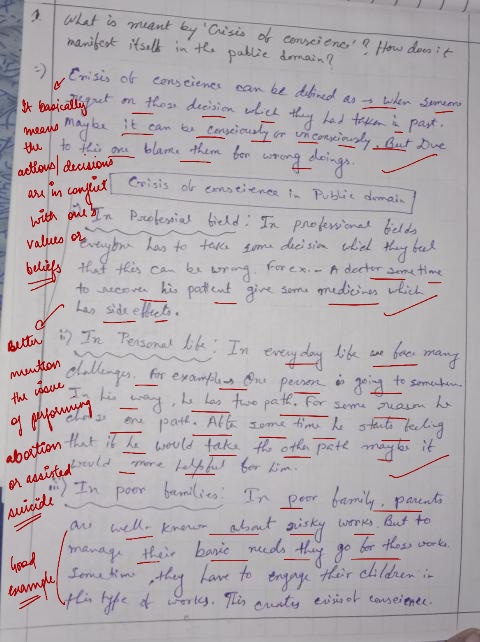 1. What is meant by 'Crisis of conscience'? How does it
manifest itself in the public domain?
=) Crisis of conscience can be defined as → when someone
regret on those decision which they had taken in past.
Maybe it can be consciously or unconsciously. But Due
to this one blame them for wrong doings.
It basically
means
the
actions/decisions
are in conflict
with one's
values or
beliefs
Crisis of conscience in Public domain
i) In Professial field: In professional fields
everyone has to take some decision which they feel
that this can be wrong. For ex.- A doctor some time
to recover his patient give some medicines which
has side effects.
ii) In Personal life: In everyday life we face many
challenges. For example One person is going to somewhere.
In his way, he has two path. For some reason he
chose one path. After some time he starts feeling
that if he would take the other path maybe it
would more helpful for him.
Better
mention
the issue
of performing
abortion
or assisted
suicide
iii) In poor families: In poor family, parents
are well-known about risky works. But to
manage their basic needs they go for those works.
Sometime, they have to engage their children in
this type of works. This creates crisis of conscience.
Good
example